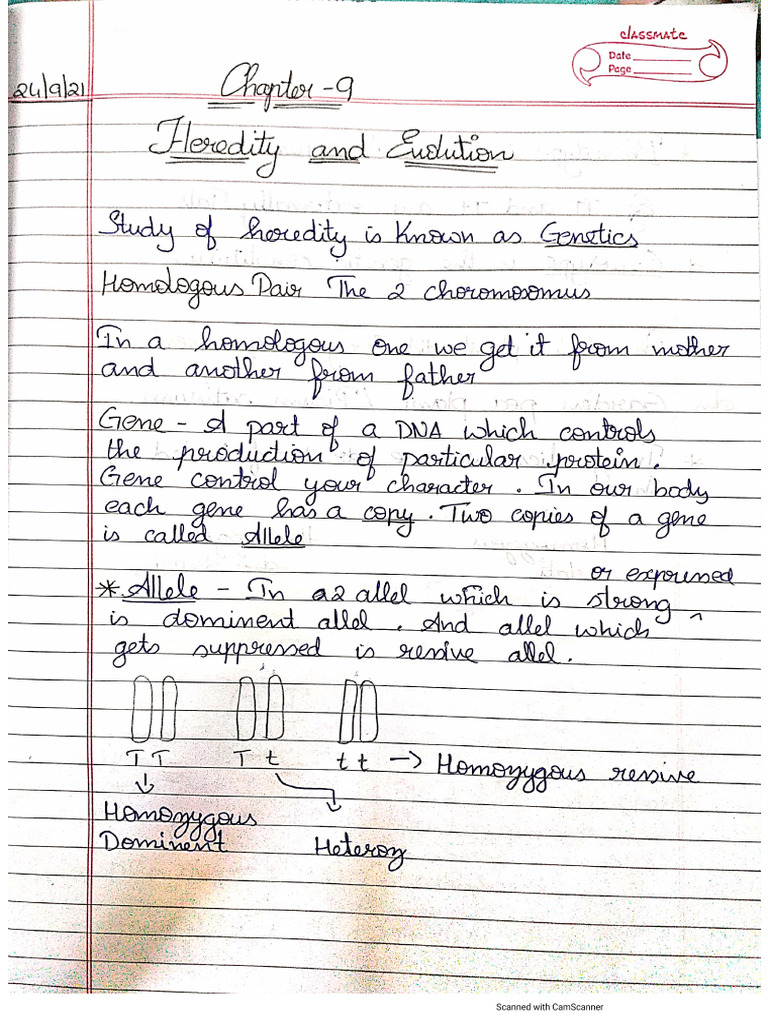 classmate
Date
Page
24/9/21
Chapter-9
Heredity and Evolution
Study of heredity is Known as Genetics
Homologous Pair The 2 choromosomus
In a homologous one we get it from mother
and another from father
Gene - A part of a DNA which controls
the production of particular protein.
Gene control your character. In our body
each gene has a copy. Two copies of a gene
is called Allele
or expoused
* Allele - In a 2 allel which is strong ^
is dominent allel. And allel which
gets suppressed is ressive allel.
T T T t t t → Homozygous ressive
Homozygous
Dominent Heteroz
Scanned with CamScanner